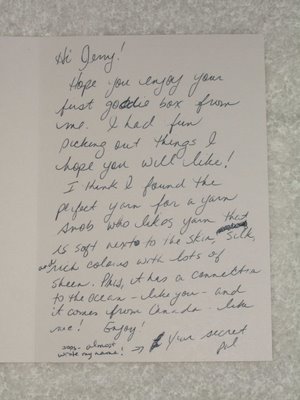 Hi Jenny!
Hope you enjoy your
first goodie box from
me. I had fun
picking out things I
hope you will like!
I think I found the
perfect yarn for a yarn
snob who likes yarn that
is soft next to the skin, silk,
rich colours with lots of
sheen. Plus, it has a connection
to the ocean - like you - and
it comes from Canada - like
me! Enjoy!
Your secret
pal
oops - almost
wrote my name! →